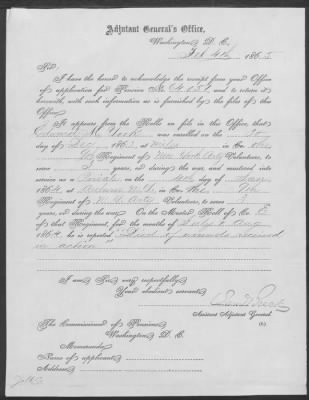 Adjutant General's Office,
Washington, D. C.
Feb 4th, 1865
Sir:
I have the honor to acknowledge the receipt from your Office
of application for Pension No. and to return it
herewith, with such information as is furnished by the files of this
Office.
It appears from the Rolls on file in this Office, that
Edwin M. York was enrolled on the
day of Dec, 1863, at in Co. the
9th Regiment of New York Arty Volunteers, to
serve 3 years, or during the war, and mustered into
service as a Private on the day of
1864, at Auburn N.Y., in Co. the 9th
Regiment of N. Y. Arty Volunteers, to serve 3
years, or during the war. On the Muster Roll of Co.
of that Regiment, for the months of July & Aug
1864, he is reported "Died of wounds received
in action"
I am Sir, very respectfully,
Your obedient servant,
Assistant Adjutant General
The Commissioner of Pensions
Washington, D. C.
Memoranda:
Name of applicant
Address